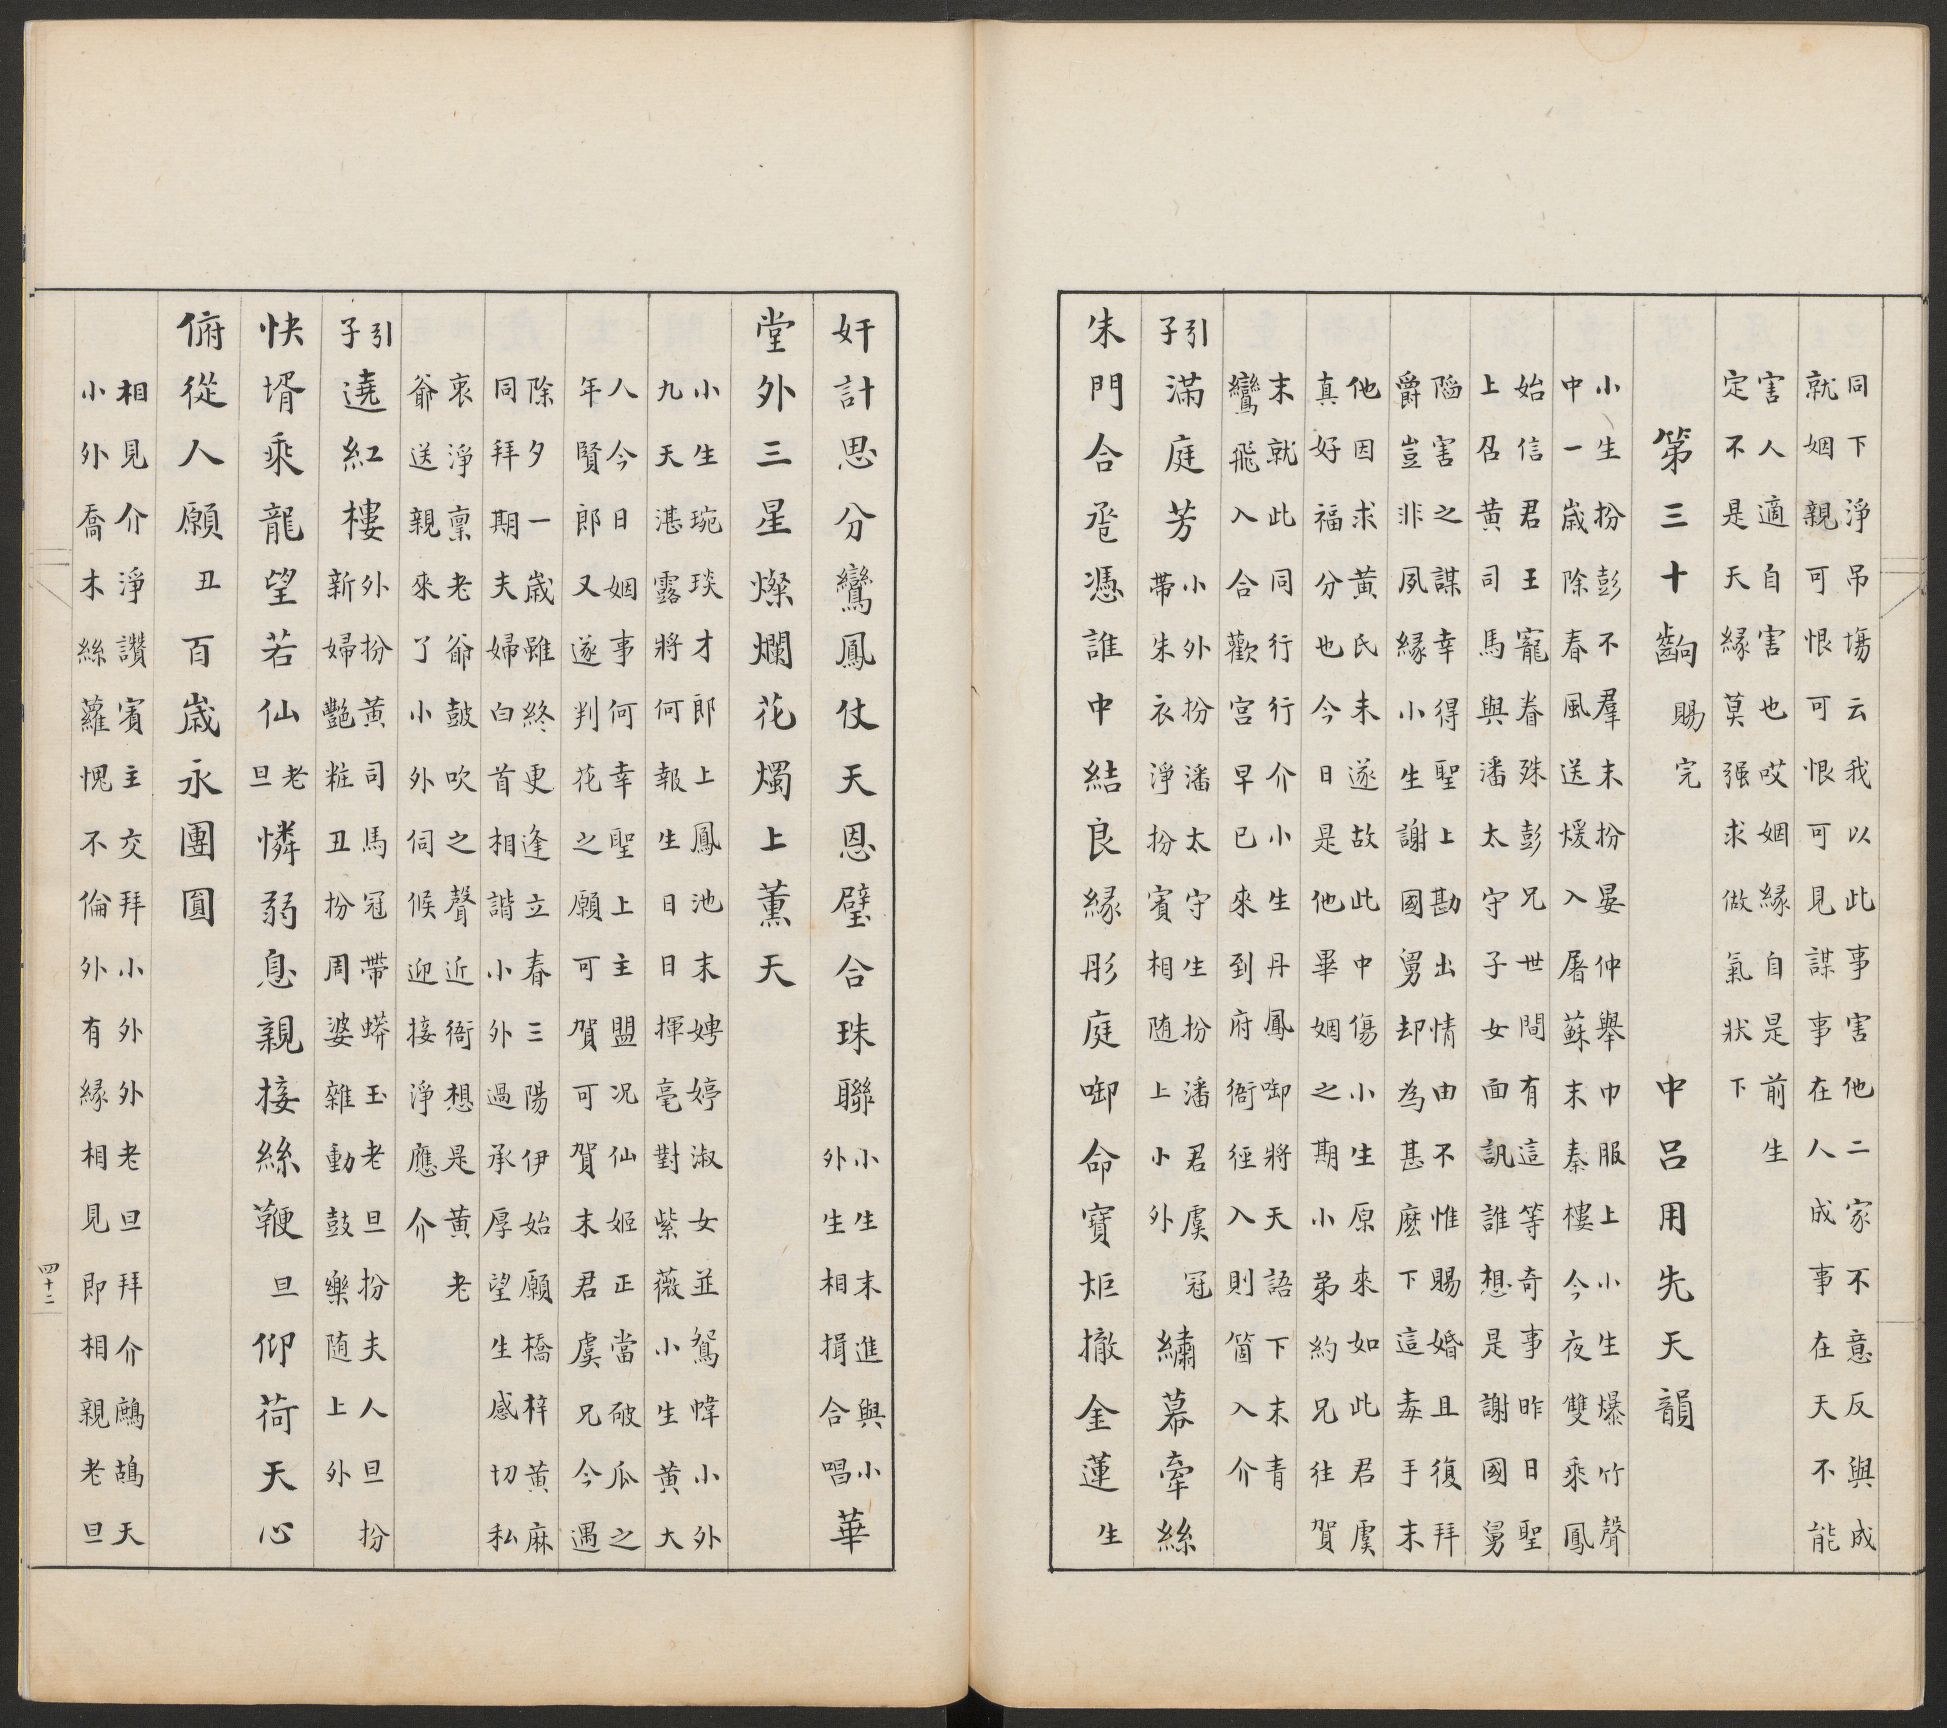 同下淨吊塲云我以此事害他二家不意反與成
就姻親可恨可恨可見謀事在人成事在天不能
害人適自害也哎姻緣自是前生
定不是天緣莫强求做氣狀下
第三十齣賜完　中呂用先天韻
小生扮彭不羣末扮晏仲舉巾服上小生爆竹聲
中一歲除春風送煖入屠蘇末秦樓今夜雙乘鳳
始信君王寵眷殊彭兄世間有這等奇事昨日聖
上召黃司馬與潘太守子女面訊誰想是謝國舅
陷害之謀幸得聖上勘出情由不惟賜婚且復拜
爵豈非夙緣小生謝國舅却為甚麽下這毒手末
他因求黃氏未遂故此中傷小生原來如此君虞
真好福分也今日是他畢姻之期小弟約兄往賀
末就此同行行介小生丹鳳啣將天語下末青
鸞飛入合歡宮早已來到府衙徑入則箇入介
引滿庭芳小外扮潘太守生扮潘君虞冠
子帶朱衣淨扮賓相随上小外繡幕牽絲
朱門合巹憑誰中結良緣彤庭啣命寶炬撤金蓮生
奸計思分鸞鳳仗天恩璧合珠聯小生末進與小
外生相揖合唱華
堂外三星燦爛花燭上薰天
小生琬琰才郎上鳳池末娉婷淑女並鴛幃小外
九天湛露將何報生日日揮毫對紫薇小生黃大
人今日姻事何幸聖上主盟况仙姬正當破瓜之
年賢郎又遂判花之願可賀可賀末君虞兄今遇
除夕一歲雖終更逢立春三陽伊始願橋梓黃麻
同拜期夫婦白首相諧小外過承厚望生感切私
衷淨稟老爺鼓吹之聲近衙想是黃老
爺送親來了小外伺候迎接淨應介
引遶紅樓外扮黃司馬冠帶蟒玉老旦扮夫人旦扮
子新婦艷粧丑扮周婆雜動鼓樂随上外
快壻乘龍望若仙老旦憐弱息親接絲鞭旦仰荷天心
俯從人願丑百歲永團圓
相見介淨讚賓主交拜小外外老旦拜介鷓鴣天
小外喬木絲蘿愧不倫外有緣相見即相親老旦
四十二